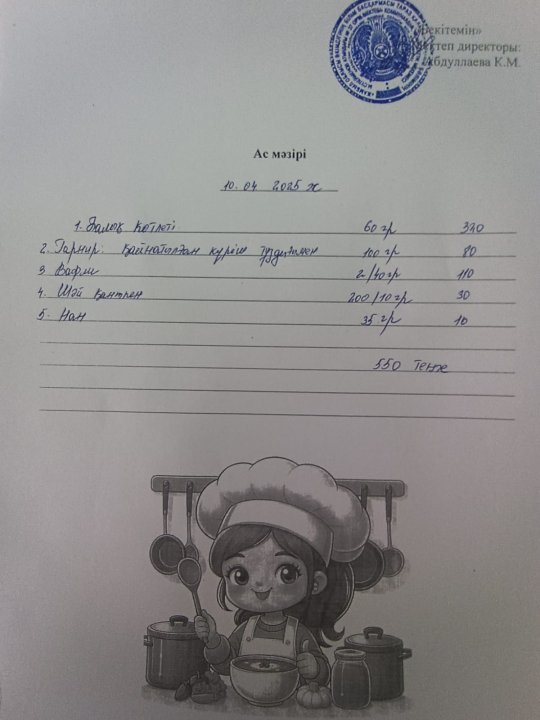 «Бекітемін»
Мектеп директоры:
Абдуллаева К.М.
Ас мәзірі
10.04 2025 ж
1. Балық котлеті 60 гр 320
2. Гарнир: қайнатылған күріш тұздықпен 100 гр 80
3 Вафли 2/40гр 110
4. Шәй қантпен 200/10гр 30
5. Нан 35 гр 10
550 теңге